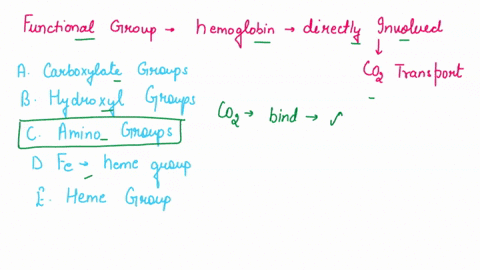 Functional Group → hemoglobin → directly Involved
↓
CO2 Transport
A. Carboxylate Groups
B. Hydroxyl Groups
C. Amino Groups
D Fe → heme group
E. Heme Group
CO2 → bind → ✓